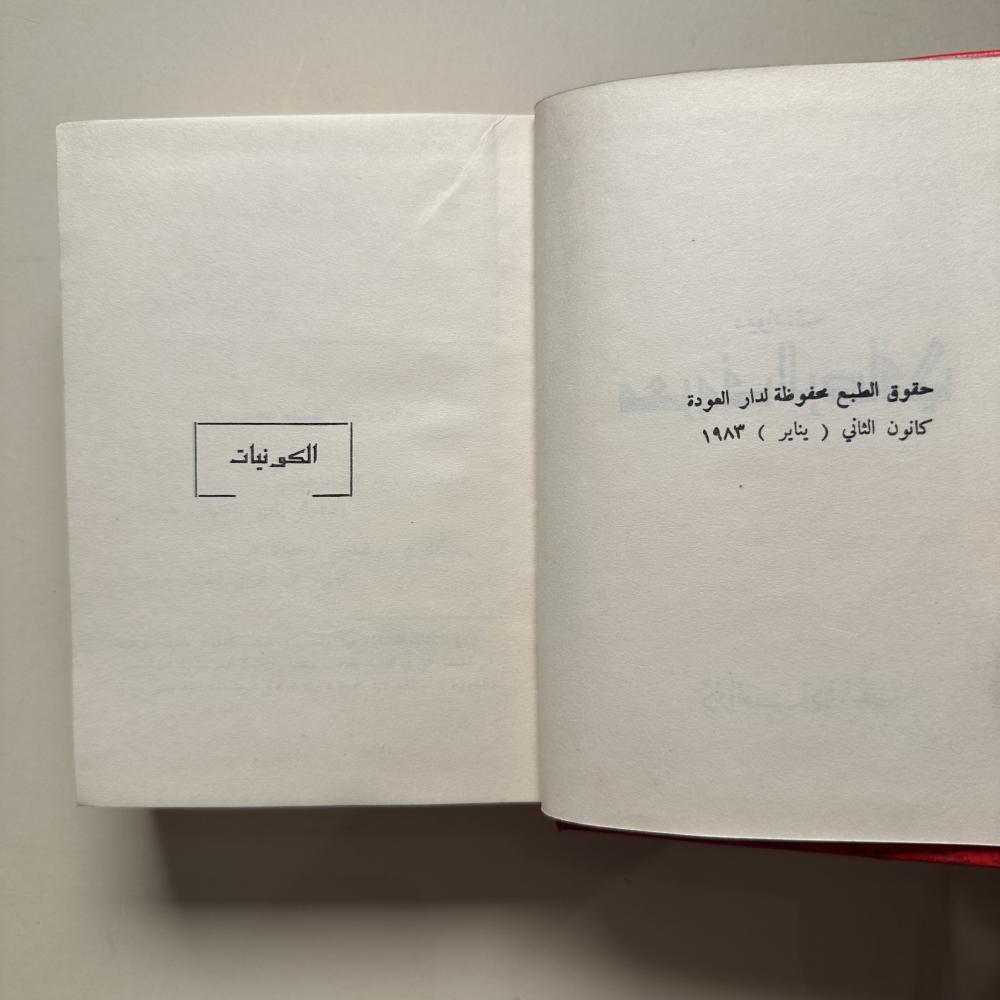 حقوق الطبع محفوظة لدار العودة
كانون الثاني ( يناير ) ١٩٨٣
الكونيات